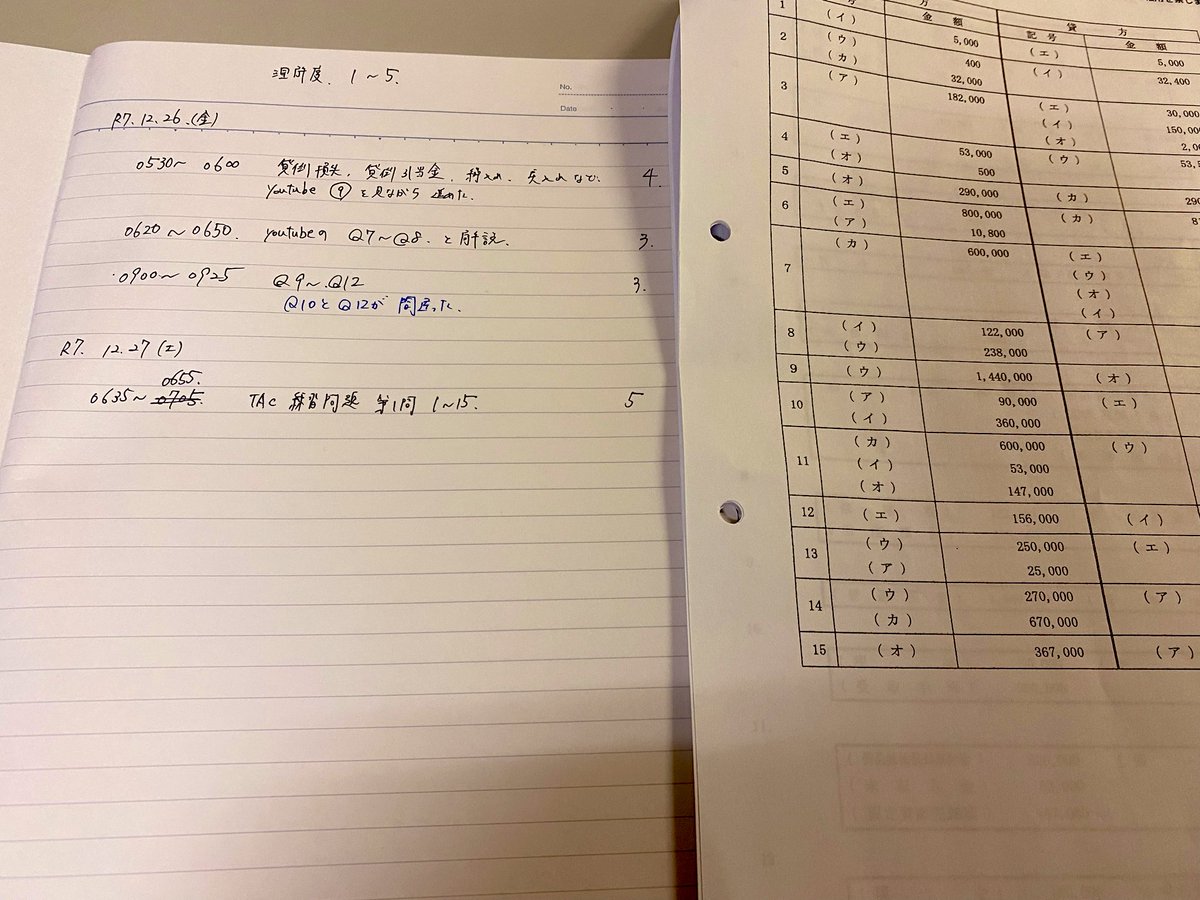 理解度. 1～5.
No.
Date
R7.12.26.(金)
0530～ 0600 貸倒損失, 貸倒引当金,
Youtube ⑨ を見ながら 進めた.
4.
0620～0650. youtubeの Q7～Q8. と解説. 3.
0900～0925 Q9～Q12 3.
Q10とQ12が 間違った.
R7. 12.27(土)
0655.
0635～ 0705. TAC 練習問題 第1問 1～15. 5
方 貸 方
金額 記号 金額
1 (イ) 5,000 (エ) 5,000
2 (ウ) 400 (イ) 32,400
(カ) 32,000
3 (ア) 182,000 (エ) 30,000
(イ)
(オ)
4 (エ) 53,000 (ウ)
(オ) 500
5 (オ) 290,000 (カ)
6 (エ) 800,000 (カ)
(ア) 10,800
7 (カ) 600,000 (エ)
(ウ)
(オ)
(イ)
8 (イ) 122,000 (ア)
(ウ) 238,000
9 (ウ) 1,440,000 (オ)
10 (ア) 90,000 (エ)
(イ) 360,000
11 (カ) 600,000 (ウ)
(イ) 53,000
(オ) 147,000
12 (エ) 156,000 (イ)
13 (ウ) 250,000 (エ)
(ア) 25,000
14 (ウ) 270,000 (ア)
(カ) 670,000
15 (オ) 367,000 (ア)